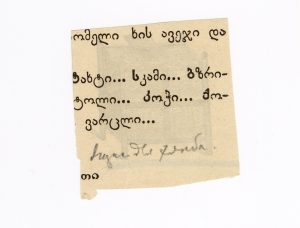 ომელი ხის ავეჯი და
ტახტი... სკამი... ბზრი-
ტოლი... კოჭი... ქო-
ვარცლი...
თი